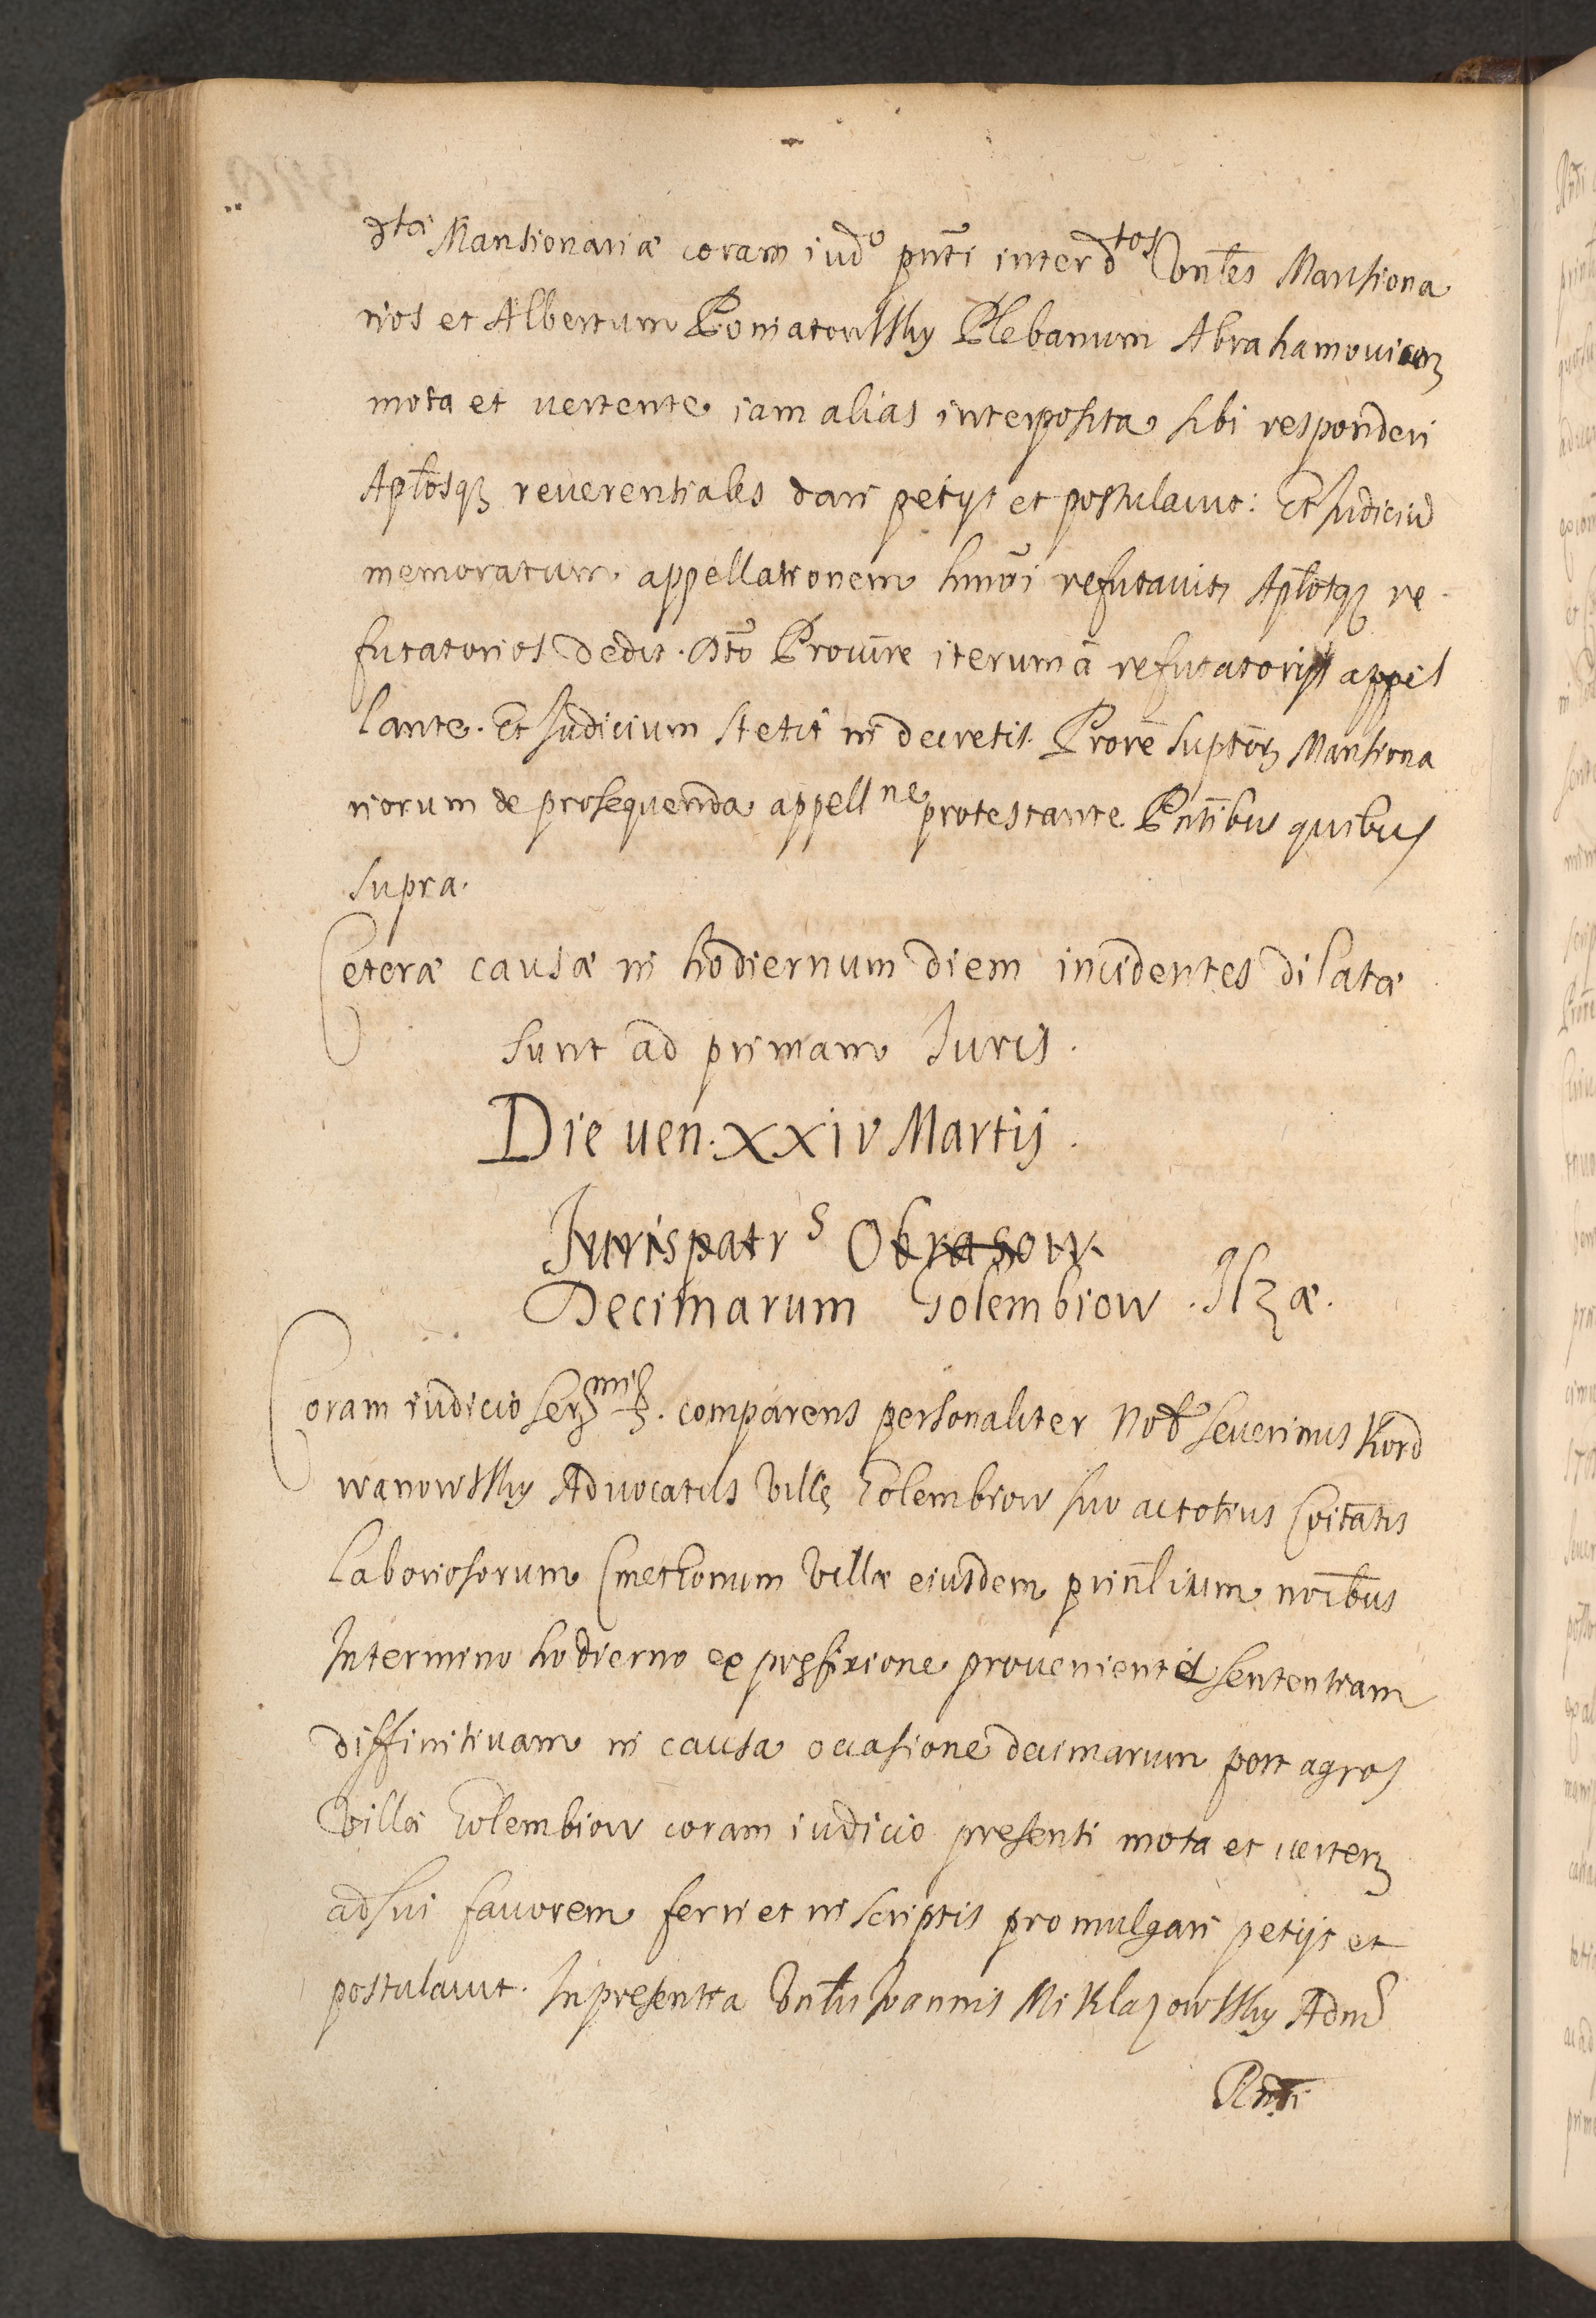 dtæ Mansionariæ coram iudo pnti inter dtos Vnbles Mansiona
rios et Albertum Poniatowsky Plebanum Abrahamouicen
mota et vertente iam alias interposita sibi responderi
Aplosq reuerentiales dari petijt et postulauit: Et Iudiciu
memoratum appellationem hmoi refutauit Aplosq re
futatorios dedit. Dto Procure iterum á refutatorijs appel
lante. Et Iudicium stetit in decretis. Prore suptor Mansiona
riorum de prosequenda appellne protestante Pntibus quibus
supra.
Ceteræ causæ in hodiernum diem incidentes dilatæ
sunt ad primam Iuris.
Die uen. XXIV Martij.
Decimarum Golembiow. Ilzæ.
Coram iudicio comparens personaliter Nob Seuerinus Kord
wanowsky Aduocatus Villę Golembiow suo ac totius Coitatis
Laboriosorum Cmethonum Villæ eiusdem prinlium noibus
In termino hodierno ex pręfixione proueniente sententiam
diffinitiuam in causa occasione decimarum post agros
Villæ Golembiow coram iudicio presenti mota et verten
ad sui fauorem ferri et in scriptis promulgari petijt et
postulauit. In presentia Vnblis Ioannis Miklazowsky Adm
Rndi